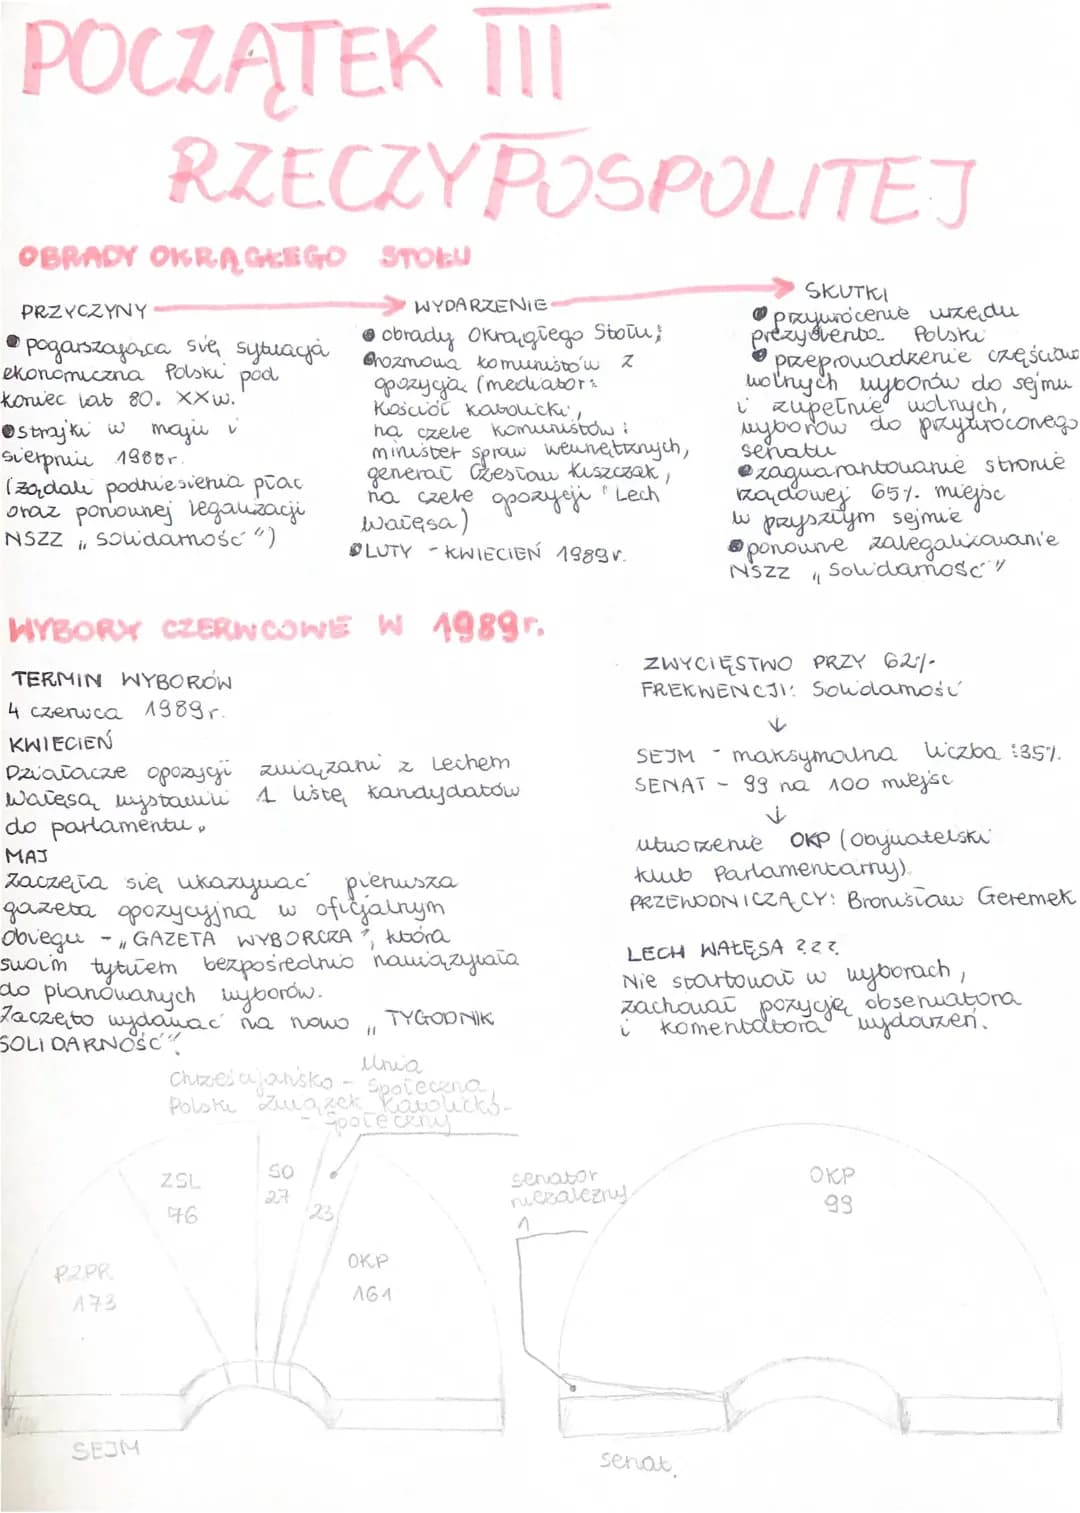 POCZĄTEK III
RZECZYPOSPOLITEJ
OBRADY OKRĄGŁEGO STOŁU
PRZYCZYNY
● pogarszająca się sytuacja
ekonomiczna Polski pod
koniec lat 80. XXw.
● strajki w maju i
sierpniu 1988r.
(żądali podniesienia płac
oraz ponownej legalizacji
NSZZ „Solidarność")
WYDARZENIE
● obrady Okrągłego Stołu;
● rozmowa komunistów z
opozycją (mediator:
Kościół katolicki,
na czele komunistów:
minister spraw wewnętrznych,
generał Czesław Kiszczak,
na czele opozycji: Lech
Wałęsa)
● LUTY - KWIECIEŃ 1989r.
SKUTKI
● przywrócenie urzędu
prezydenta Polski
● przeprowadzenie częściowo
wolnych wyborów do sejmu
i zupełnie wolnych,
wyborów do przywróconego
senatu
● zagwarantowanie stronie
rządowej 65% miejsc
w przyszłym sejmie
● ponowne zalegalizowanie
NSZZ „Solidarność"
WYBORY CZERWCOWE W 1989r.
TERMIN WYBORÓW
4 czerwca 1989r.
KWIECIEŃ
Działacze opozycji związani z Lechem
Wałęsą wystawili 1 listę kandydatów
do parlamentu.
MAJ
Zaczęła się ukazywać pierwsza
gazeta opozycyjna w oficjalnym
obiegu - „GAZETA WYBORCZA", która
swoim tytułem bezpośrednio nawiązywała
do planowanych wyborów.
Zaczęto wydawać na nowo „TYGODNIK
SOLIDARNOŚĆ".
ZWYCIĘSTWO PRZY 62%
FREKWENCJI: Solidarność
↓
SEJM - maksymalna liczba: 35%.
SENAT - 99 na 100 miejsc
↓
utworzenie OKP (Obywatelski
Klub Parlamentarny).
PRZEWODNICZĄCY: Bronisław Geremek
LECH WAŁĘSA ???
Nie startował w wyborach,
zachował pozycję obserwatora
i komentatora wydarzeń.
Unia
Chrześcijańsko - Społeczna,
Polski Związek Katolicko-
- Społeczny
PZPR
173
ZSL
76
SD
27
23
OKP
161
SEJM
senator
niezależny
1
OKP
99
senat.